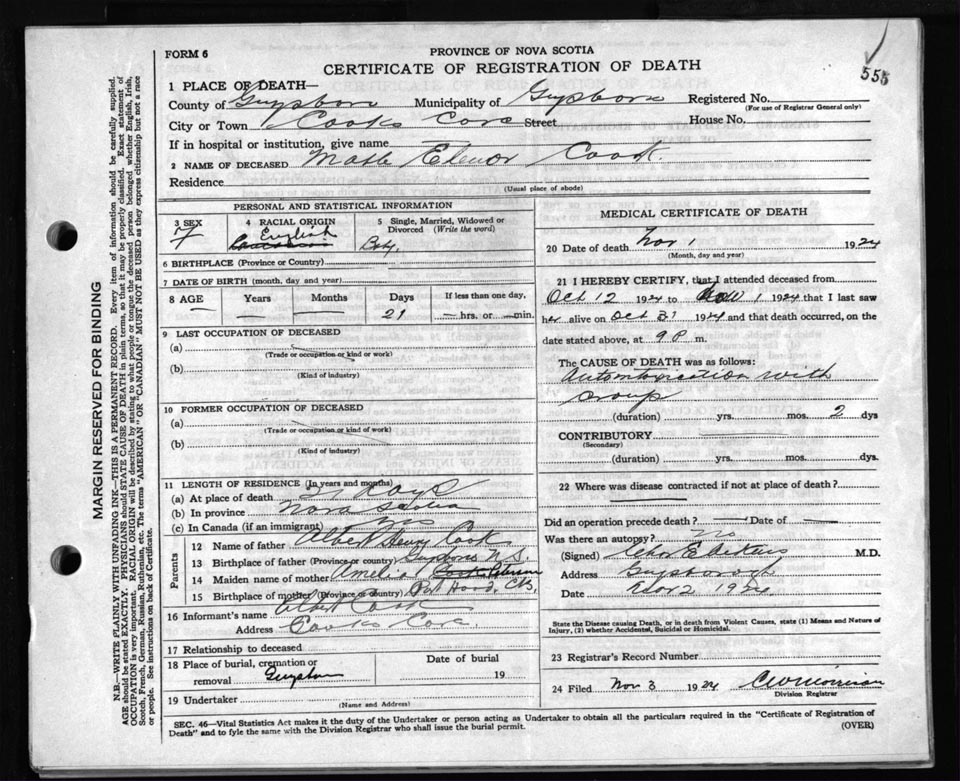 555
FORM 6
PROVINCE OF NOVA SCOTIA
CERTIFICATE OF REGISTRATION OF DEATH
1 PLACE OF DEATH—
County of Guysboro Municipality of Guysboro Registered No.
(For use of Registrar General only)
City or Town Cooks Cove Street House No.
If in hospital or institution, give name
2 NAME OF DECEASED Mable Elenor Cook.
Residence
(Usual place of abode)
PERSONAL AND STATISTICAL INFORMATION
3 SEX
F
4 RACIAL ORIGIN
English
5 Single, Married, Widowed or Divorced (Write the word)
Baby.
6 BIRTHPLACE (Province or Country)
7 DATE OF BIRTH (month, day and year)
8 AGE — Years — Months — Days 21 If less than one day, — hrs. or — min.
9 LAST OCCUPATION OF DECEASED
(a)
(Trade or occupation or kind of work)
(b)
(Kind of industry)
10 FORMER OCCUPATION OF DECEASED
(a)
(Trade or occupation or kind of work)
(b)
(Kind of industry)
11 LENGTH OF RESIDENCE (In years and months)
(a) At place of death 21 days
(b) In province Nova Scotia
(c) In Canada (if an immigrant) Yes
Parents
12 Name of father Albert Henry Cook
13 Birthplace of father (Province or country) Guysboro N.S.
14 Maiden name of mother Amelia Cook Peterson
15 Birthplace of mother (Province or Country) Port Hood, C.B.
16 Informant's name Albert Cook
Address Cooks Cove.
17 Relationship to deceased
18 Place of burial, cremation or removal Guysboro
Date of burial 19
19 Undertaker
(Name and Address)
MEDICAL CERTIFICATE OF DEATH
20 Date of death Nov 1 1924
(Month, day and year)
21 I HEREBY CERTIFY, that I attended deceased from
Oct 12 1924 to Nov 1 1924 that I last saw
her alive on Oct 31 1924 and that death occurred, on the
date stated above, at 9 P m.
The CAUSE OF DEATH was as follows:
Autointoxication with
croup
(duration) yrs. mos. 2 dys
CONTRIBUTORY
(Secondary)
(duration) yrs. mos. dys.
22 Where was disease contracted if not at place of death?
Did an operation precede death? — Date of —
Was there an autopsy? No
(Signed) M.D.
Address Guysborough
Date Nov 2 1924
State the Disease causing Death, or in death from Violent Causes, state (1) Means and Nature of
Injury, (2) whether Accidental, Suicidal or Homicidal.
23 Registrar's Record Number
24 Filed Nov 3 1924 C W Morrison
Division Registrar
SEC. 46—Vital Statistics Act makes it the duty of the Undertaker or person acting as Undertaker to obtain all the particulars required in the "Certificate of Registration of
Death" and to fyle the same with the Division Registrar who shall issue the burial permit. (OVER)
MARGIN RESERVED FOR BINDING
N.B.—WRITE PLAINLY WITH UNFADING INK—THIS IS A PERMANENT RECORD. Every item of information should be carefully supplied.
AGE should be stated EXACTLY. PHYSICIANS should STATE CAUSE OF DEATH in plain terms, so that it may be properly classified. Exact statement of
OCCUPATION is very important. RACIAL ORIGIN will be described by stating to what people or tongue the deceased person belonged whether English, Irish,
Scotch, French, German, Russian, Ruthenian, etc. The terms "AMERICAN" OR "CANADIAN" MUST NOT BE USED as they express citizenship but not a race
or people. See instructions on back of Certificate.